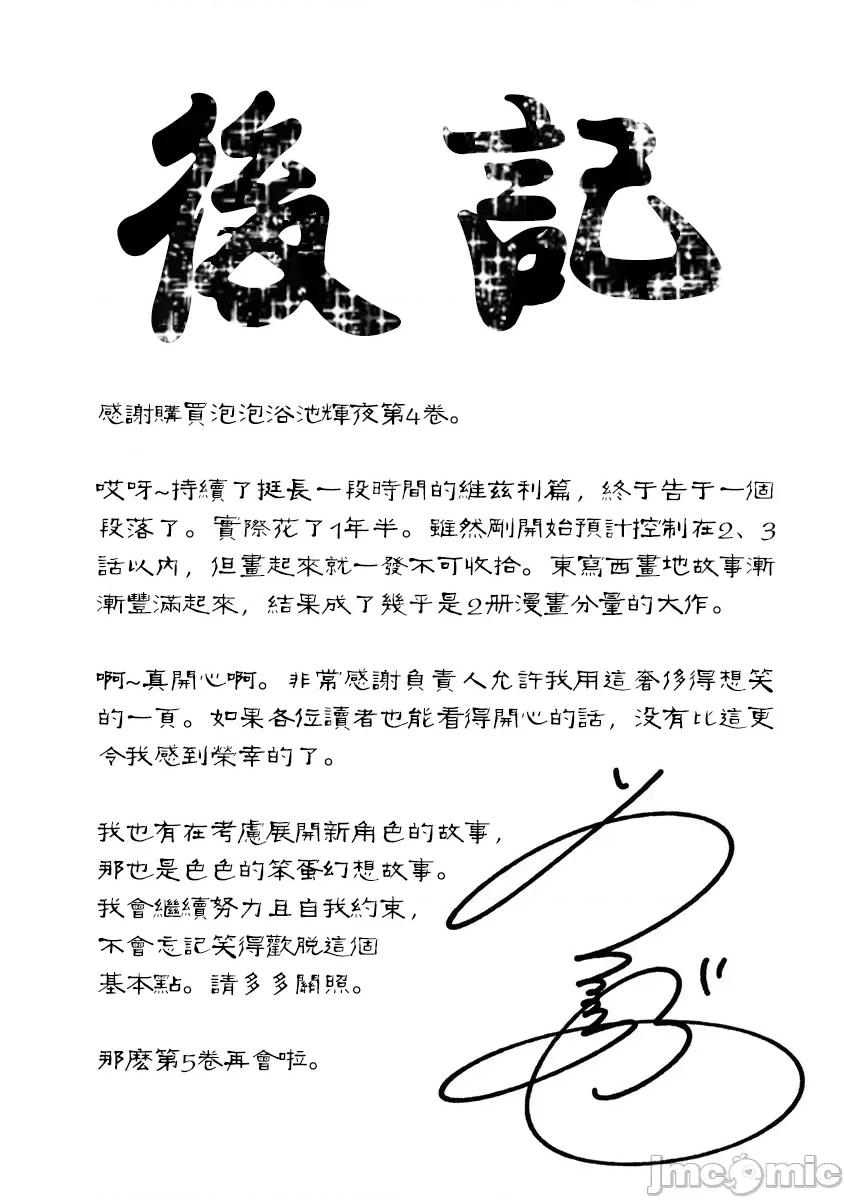 後記
感謝購買泡泡浴池輝夜第4卷。
哎呀~持續了挺長一段時間的維茲利篇，終于告于一個
段落了。實際花了1年半。雖然剛開始預計控制在2、3
話以內，但畫起來就一發不可收拾。東寫西畫地故事漸
漸豐滿起來，結果成了幾乎是2册漫畫分量的大作。
啊~真開心啊。非常感謝負責人允許我用這奢侈得想笑
的一頁。如果各位讀者也能看得開心的話，没有比這更
令我感到榮幸的了。
我也有在考慮展開新角色的故事，
那也是色色的笨蛋幻想故事。
我會繼續努力且自我約束，
不會忘記笑得歡脱這個
基本點。請多多關照。
那麽第5卷再會啦。
jmcomic